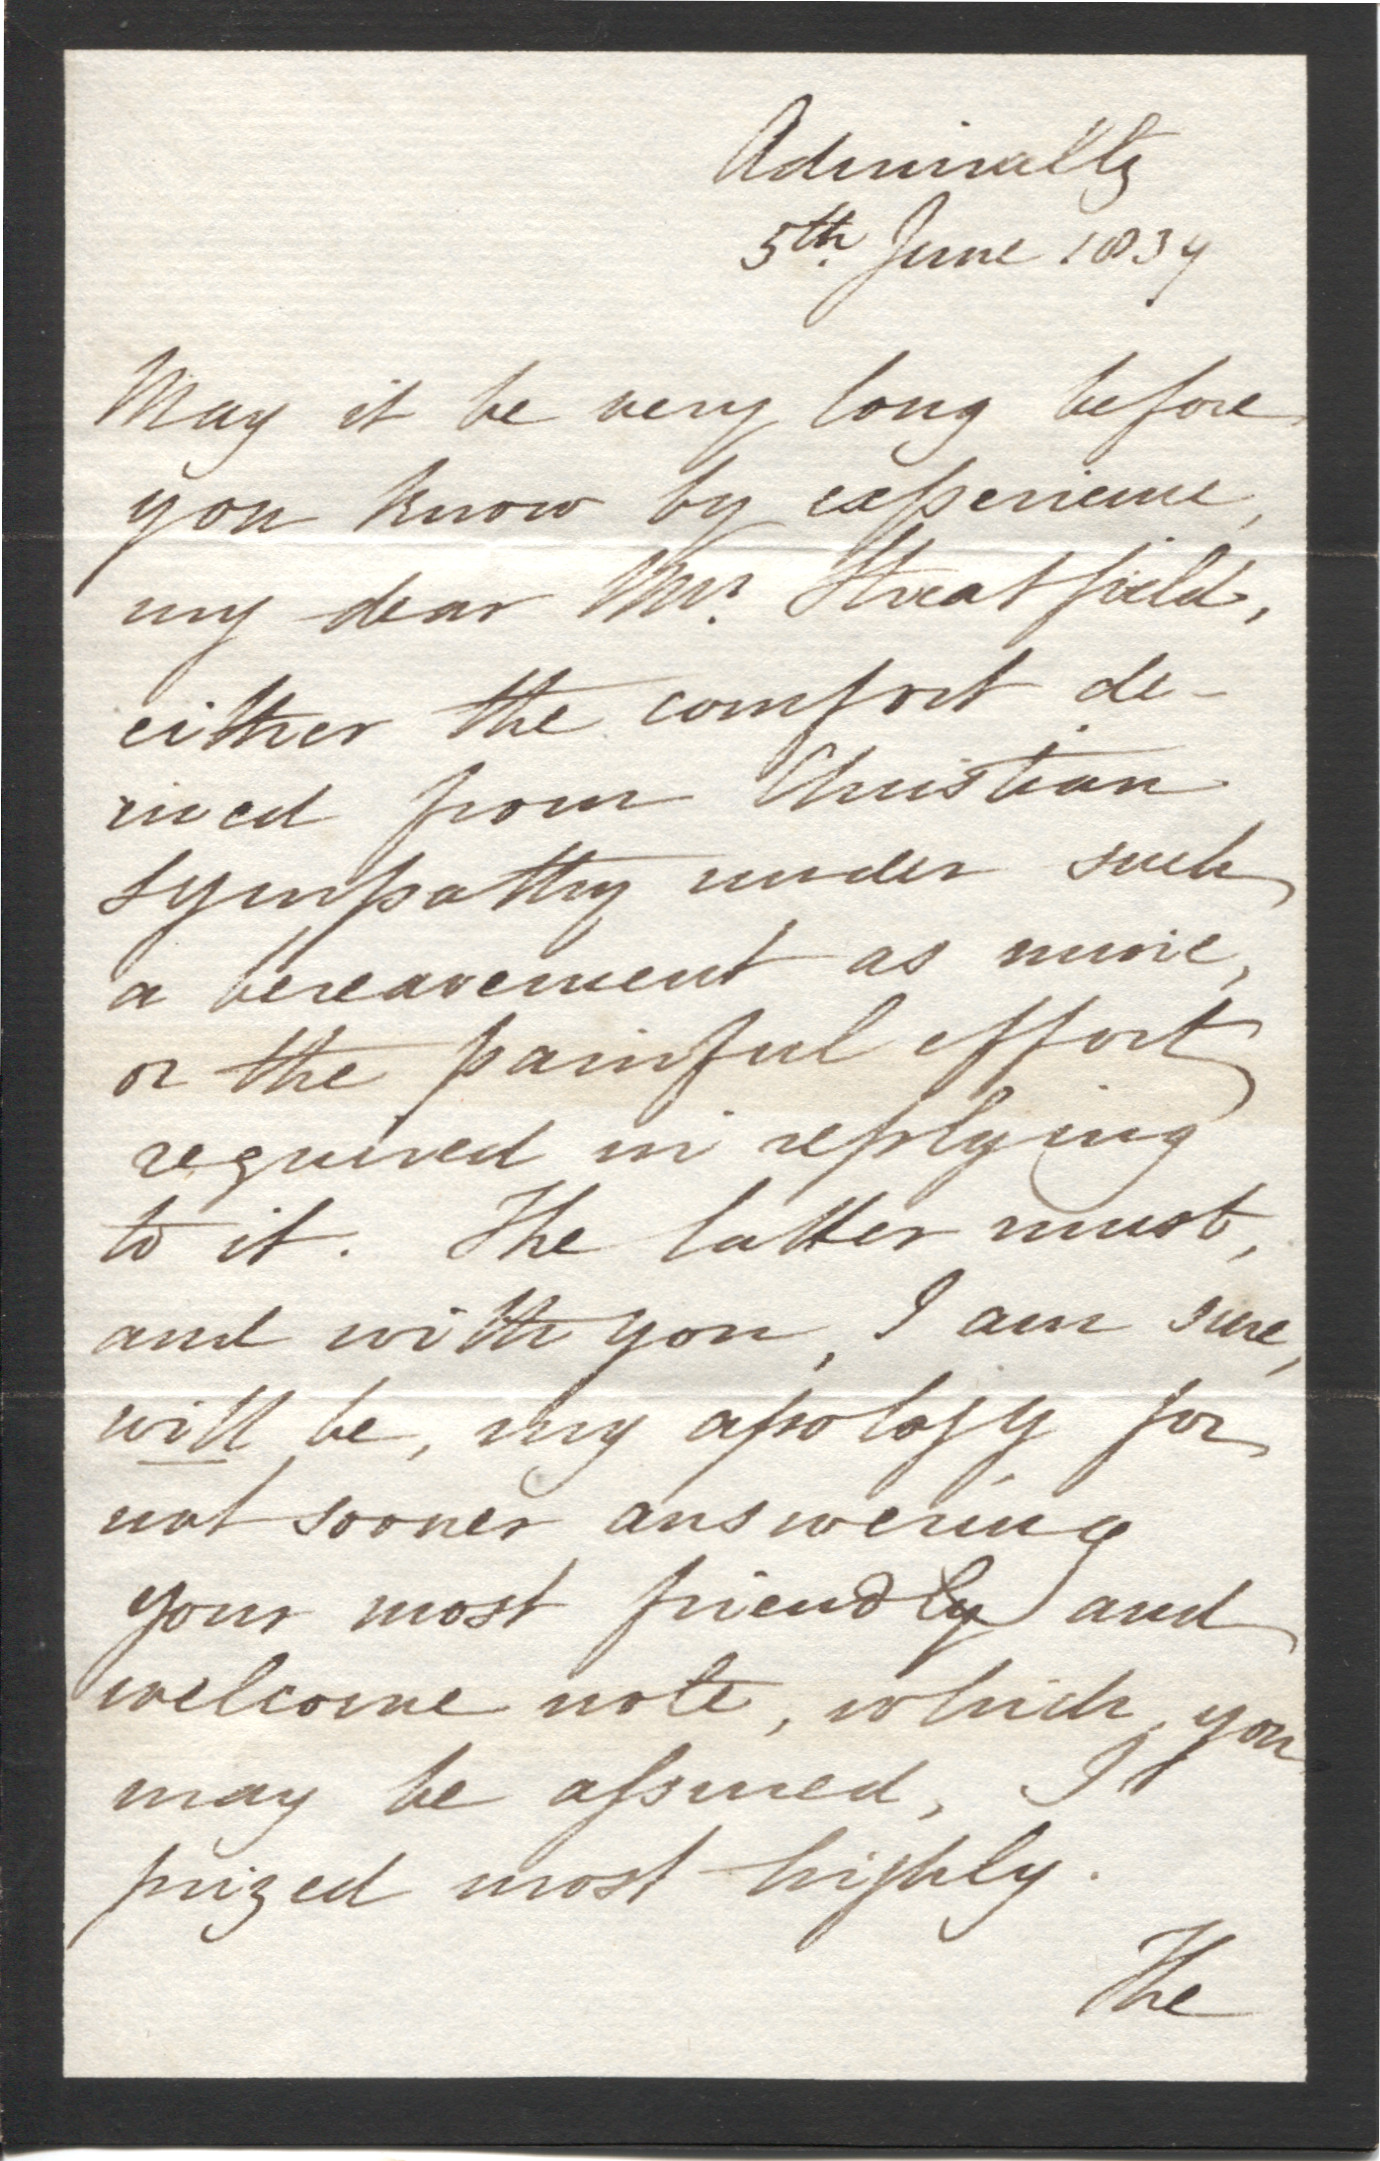 Admiralty
5th. June 1839
May it be very long before
you know by experience,
my dear Mr. Streatfield,
either the comfort de-
rived from Christian
sympathy under such
a bereavement as mine,
or the painful effort
required in replying
to it. The latter must,
and with you, I am sure,
will be, my apology for
not sooner answering
your most friendly and
welcome note, which, you
may be assured, I
prized most highly.
The